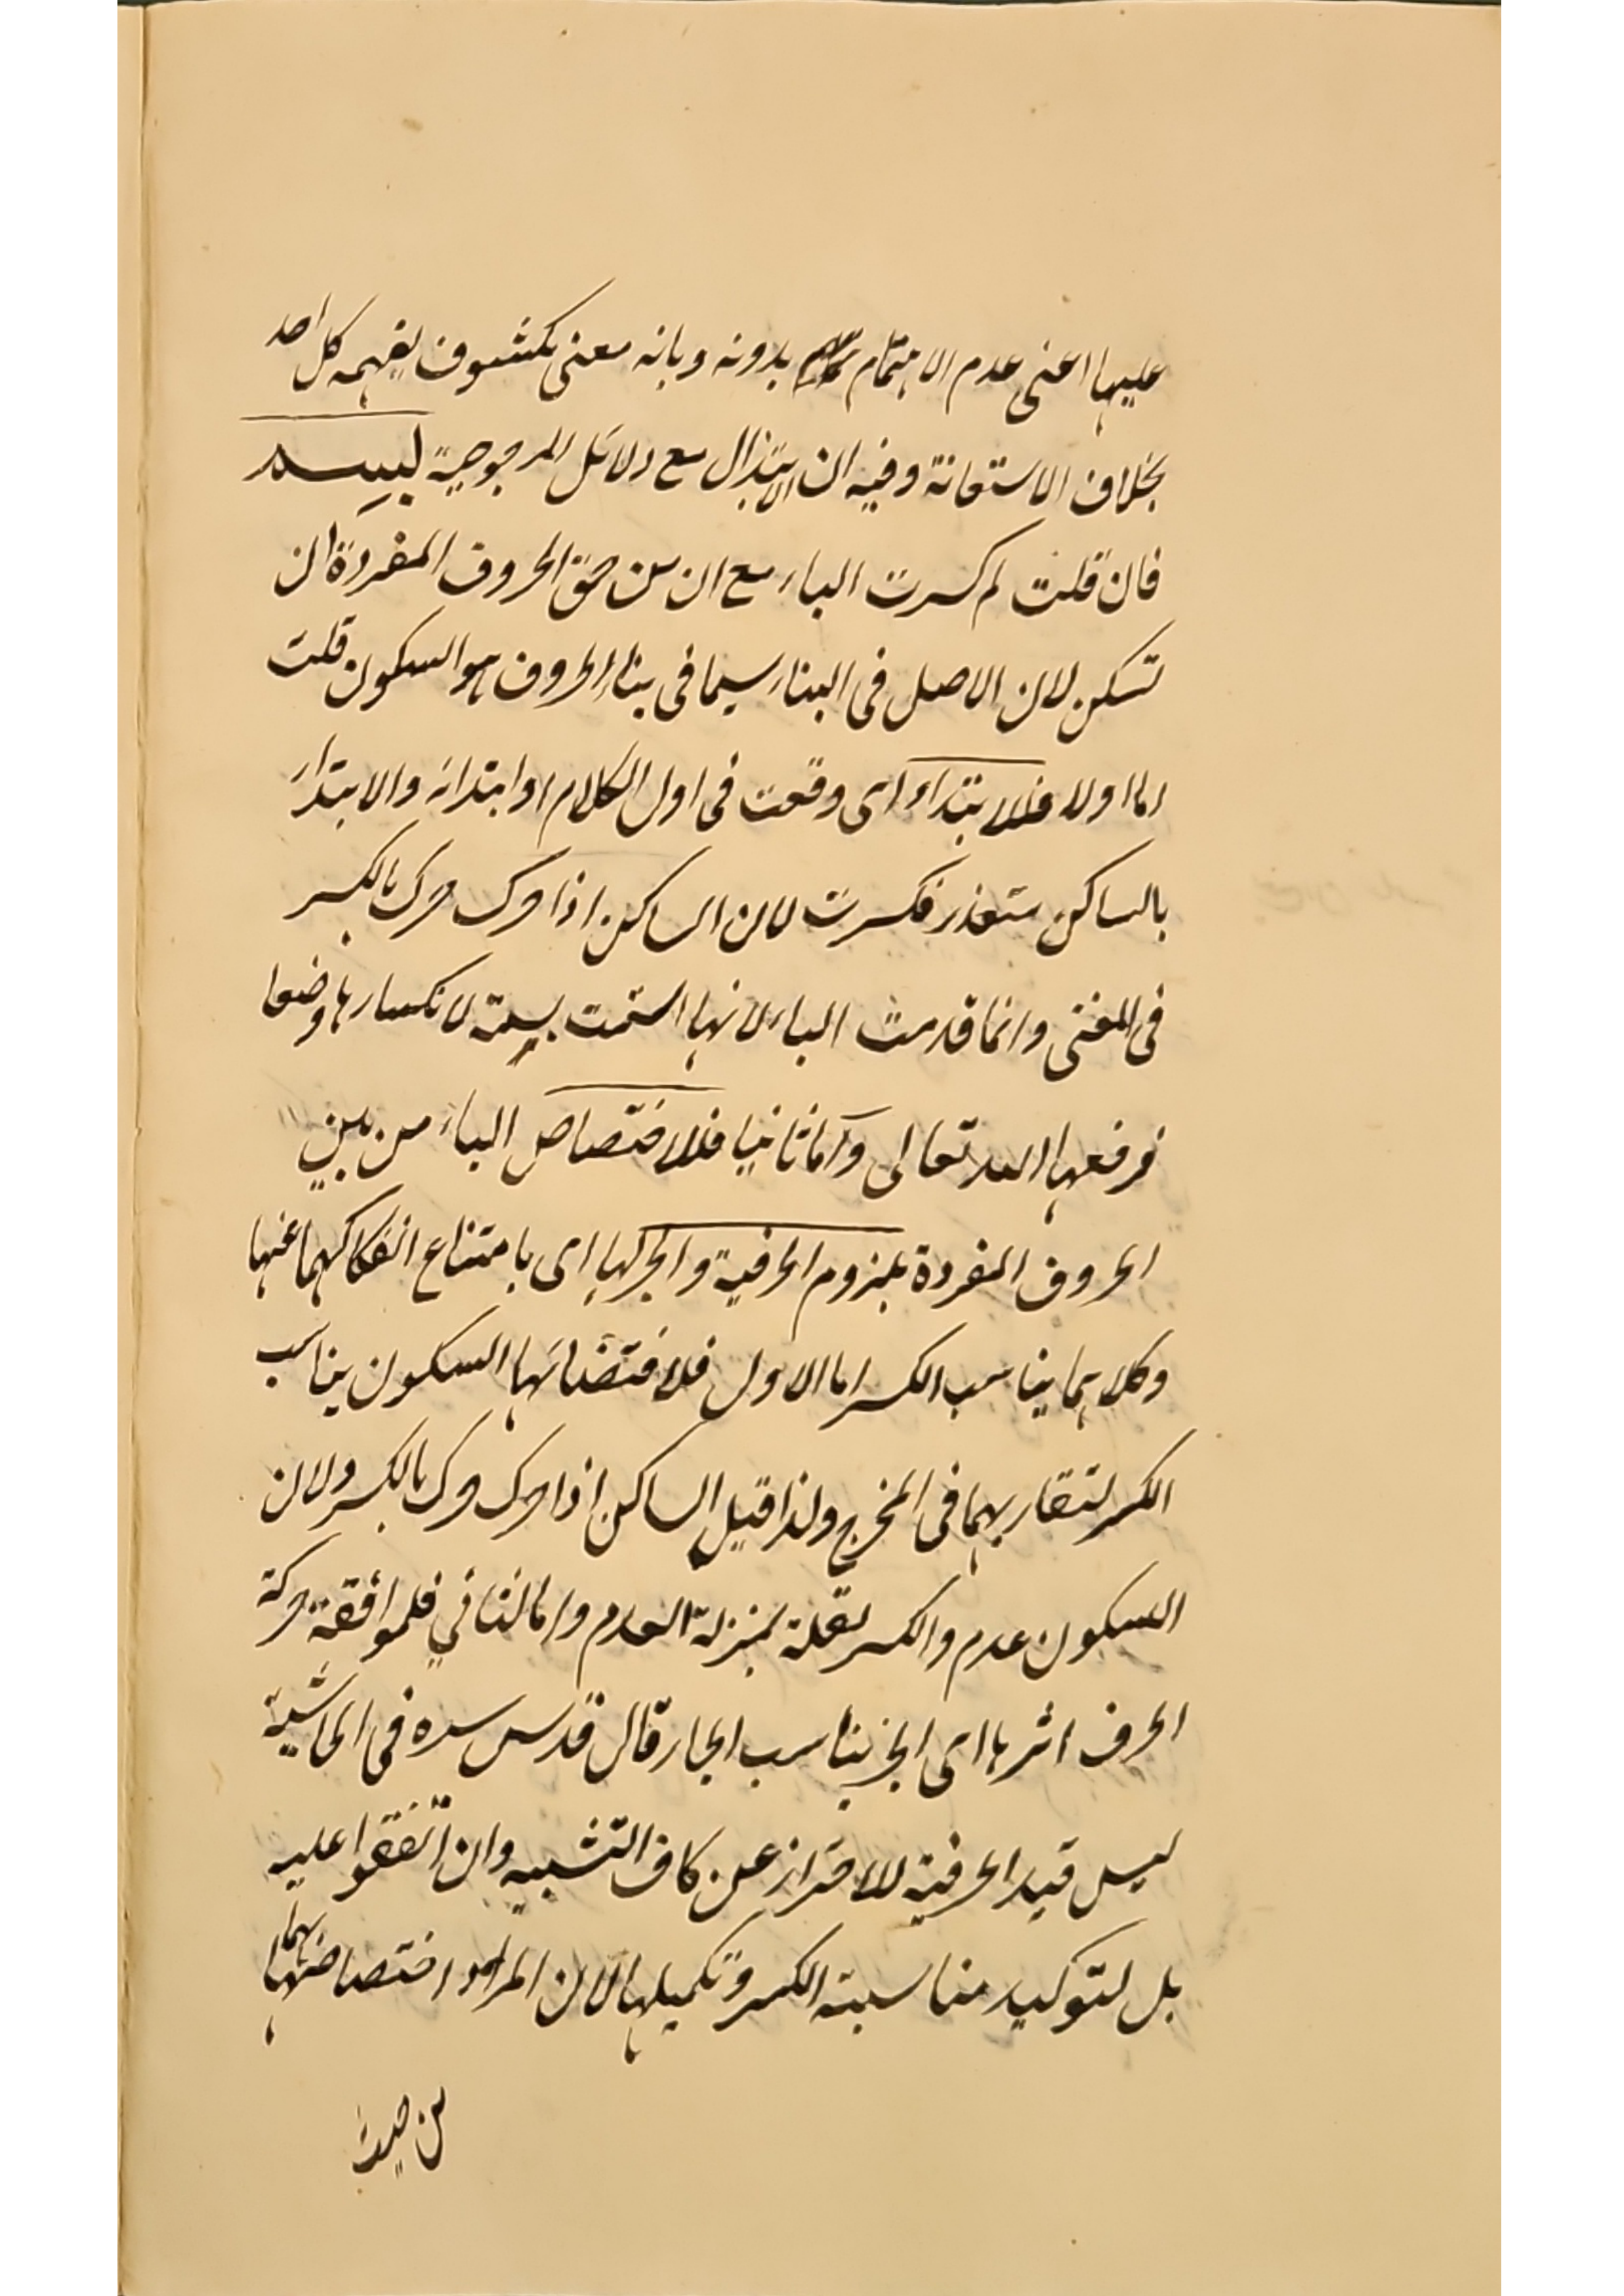 عليها اعنى عدم الاهتمام بدونه وبانه معنى مكشوف يفهمه كل احد
بخلاف الاستعانة وفيه ان الابتذال مع دلائل المرجوحية ليس
فان قلت لم كسرت الباء مع ان من حق الحروف المفردة ان
تسكن لان الاصل فى البناء سيما فى بناء الحروف هو السكون قلت
اما اولا فللابتداء اى وقعت فى اول الكلام او ابتدائه والابتداء
بالساكن متعذر فكسرت لان الساكن اذا حرك حرك بالكسر
فى المغنى وانما قدمت الباء لانها اتسمت بسمة لانكسارها وضعا
فرفعها الله تعالى واما ثانيا فلاختصاص الباء من بين
الحروف المفردة بلزوم الحرفية والجر لها اى بامتناع انفكاكهما عنها
وكلاهما يناسب الكسر اما الاول فلاقتضائها السكون يناسب
الكسر لتقاربهما فى المخرج ولذا قيل الساكن اذا حرك حرك بالكسر ولان
السكون عدم والكسر لقلة بمنزلة العدم واما الثاني فلموافقة حركة
الحرف اثرها اى الجر يناسب الجار قال قدس سره فى الحاشية
ليس قيد الحرفية للاحتراز عن كاف التشبيه وان اتفقوا عليه
بل لتوكيد مناسبة الكسر وتكميلها لان المراد اختصاصها بهما
من حيث